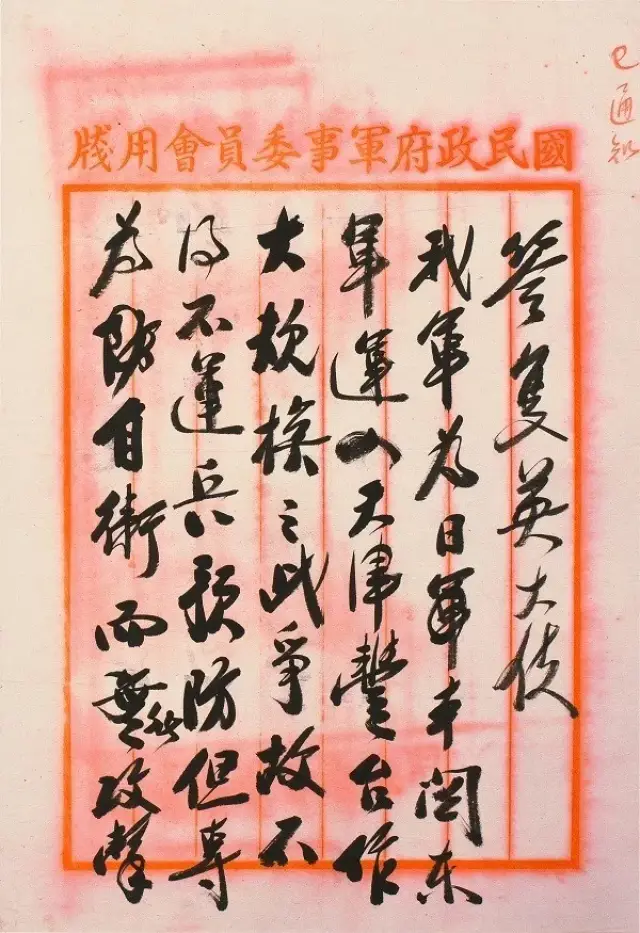 已通知
國民政府軍事委員會用牋
答隻英大使
我軍為日軍關東
軍運入天津豐台作
大規模之戰爭故不
得不運兵預防但專
為防自衛而無攻擊